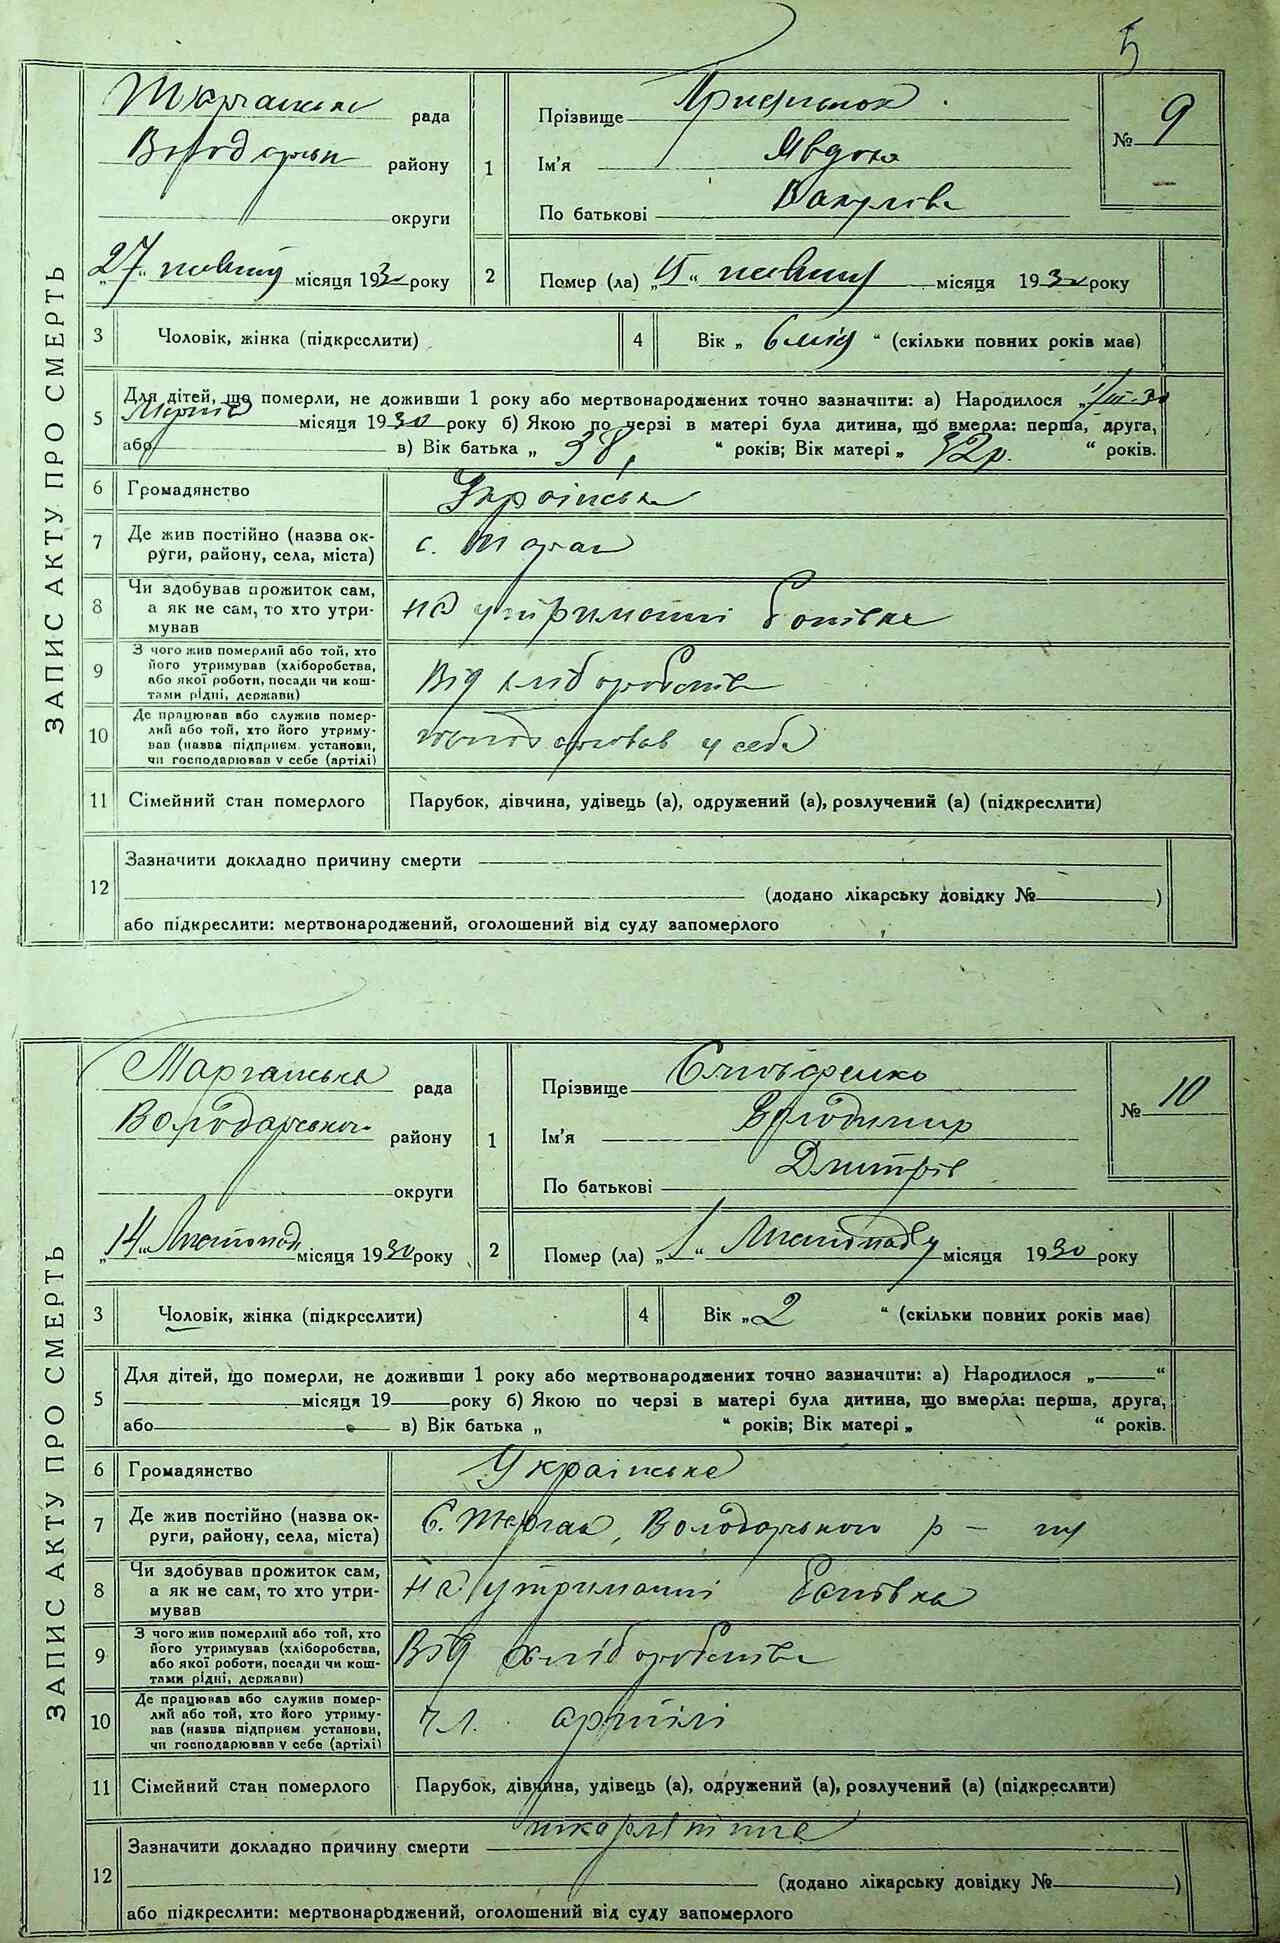 5
ЗАПИС АКТУ ПРО СМЕРТЬ
рада
району
округи
„27“ місяця 1930 року
1
Прізвище
Ім'я Явдоха
По батькові Вакулівна
№ 9
2 Помер (ла) „15“ місяця 1930 року
3 Чоловік, жінка (підкреслити)
4 Вік „ 6 мід “ (скільки повних років має)
5 Для дітей, що померли, не доживши 1 року або мертвонароджених точно зазначити: а) Народилося „1/III-30
місяця 1930 року б) Якою по черзі в матері була дитина, що вмерла: перша, друга,
або в) Вік батька „ 38, “ років; Вік матері „ 32 р. “ років.
6 Громадянство Українська
7 Де жив постійно (назва ок-
руги, району, села, міста) с.
8 Чи здобував прожиток сам,
а як не сам, то хто утри-
мував на утриманні батька
9 З чого жив померлий або той, хто
його утримував (хліборобства,
або якої роботи, посади чи кош-
тами рідні, держави) Від хліборобства
10 Де працював або служив помер-
лий або той, хто його утриму-
вав (назва підприєм. установи,
чи господарював у себе (артілі) господарював у себе
11 Сімейний стан померлого Парубок, дівчина, удівець (а), одружений (а), розлучений (а) (підкреслити)
12 Зазначити докладно причину смерти
(додано лікарську довідку № )
або підкреслити: мертвонароджений, оголошений від суду запомерлого
ЗАПИС АКТУ ПРО СМЕРТЬ
рада
Володарського району
округи
„14“ Листопада місяця 1930 року
1
Прізвище
Ім'я Володимир
По батькові Дмитрів
№ 10
2 Помер (ла) „1“ Листопаду місяця 1930 року
3 Чоловік, жінка (підкреслити)
4 Вік „ 2 “ (скільки повних років має)
5 Для дітей, що померли, не доживши 1 року або мертвонароджених точно зазначити: а) Народилося „ “
місяця 19 року б) Якою по черзі в матері була дитина, що вмерла: перша, друга,
або в) Вік батька „ “ років; Вік матері „ “ років.
6 Громадянство Українське
7 Де жив постійно (назва ок-
руги, району, села, міста) С. Володарського р-ну
8 Чи здобував прожиток сам,
а як не сам, то хто утри-
мував на утриманні батька
9 З чого жив померлий або той, хто
його утримував (хліборобства,
або якої роботи, посади чи кош-
тами рідні, держави) Від хліборобства
10 Де працював або служив помер-
лий або той, хто його утриму-
вав (назва підприєм. установи,
чи господарював у себе (артілі) чл. артілі
11 Сімейний стан померлого Парубок, дівчина, удівець (а), одружений (а), розлучений (а) (підкреслити)
12 Зазначити докладно причину смерти шкарлатина
(додано лікарську довідку № )
або підкреслити: мертвонароджений, оголошений від суду запомерлого